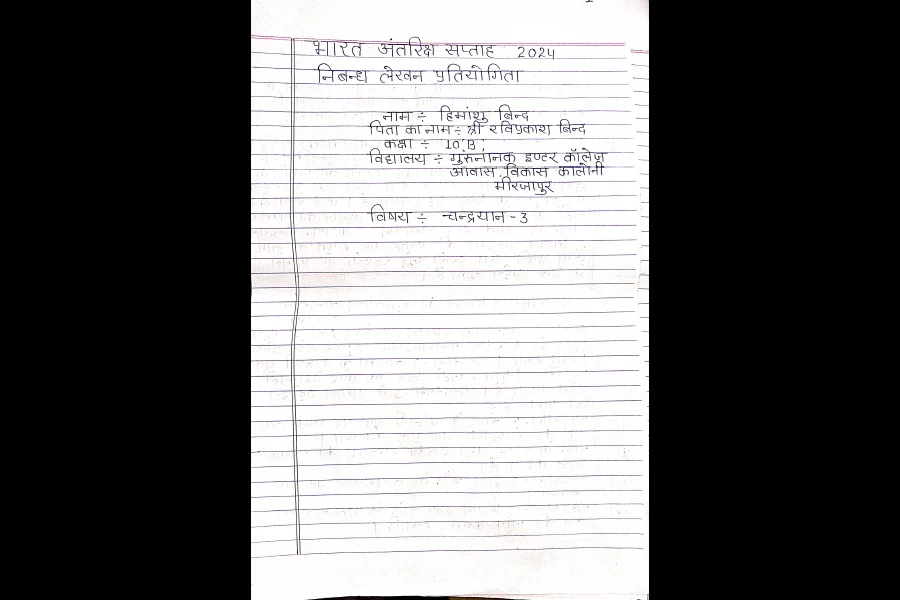 भारत अंतरिक्ष सप्ताह 2024
निबन्ध लेखन प्रतियोगिता
नाम ÷ हिमांशु बिन्द
पिता का नाम ÷ श्री रविप्रकाश बिन्द
कक्षा ÷ 10'B'
विद्यालय ÷ गुरुनानक इण्टर कॉलेज
आवास विकास कालोनी
मीरजापुर
विषय ÷ चन्द्रयान - 3